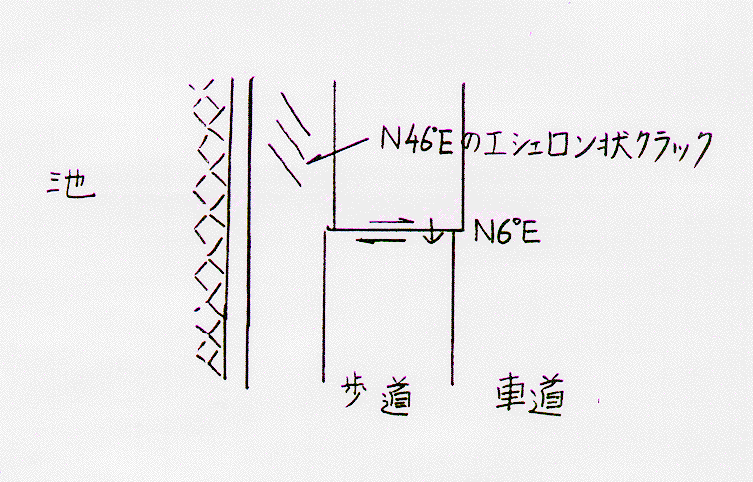 N46°Eのエシェロン状クラック
池
N6°E
歩道
車道